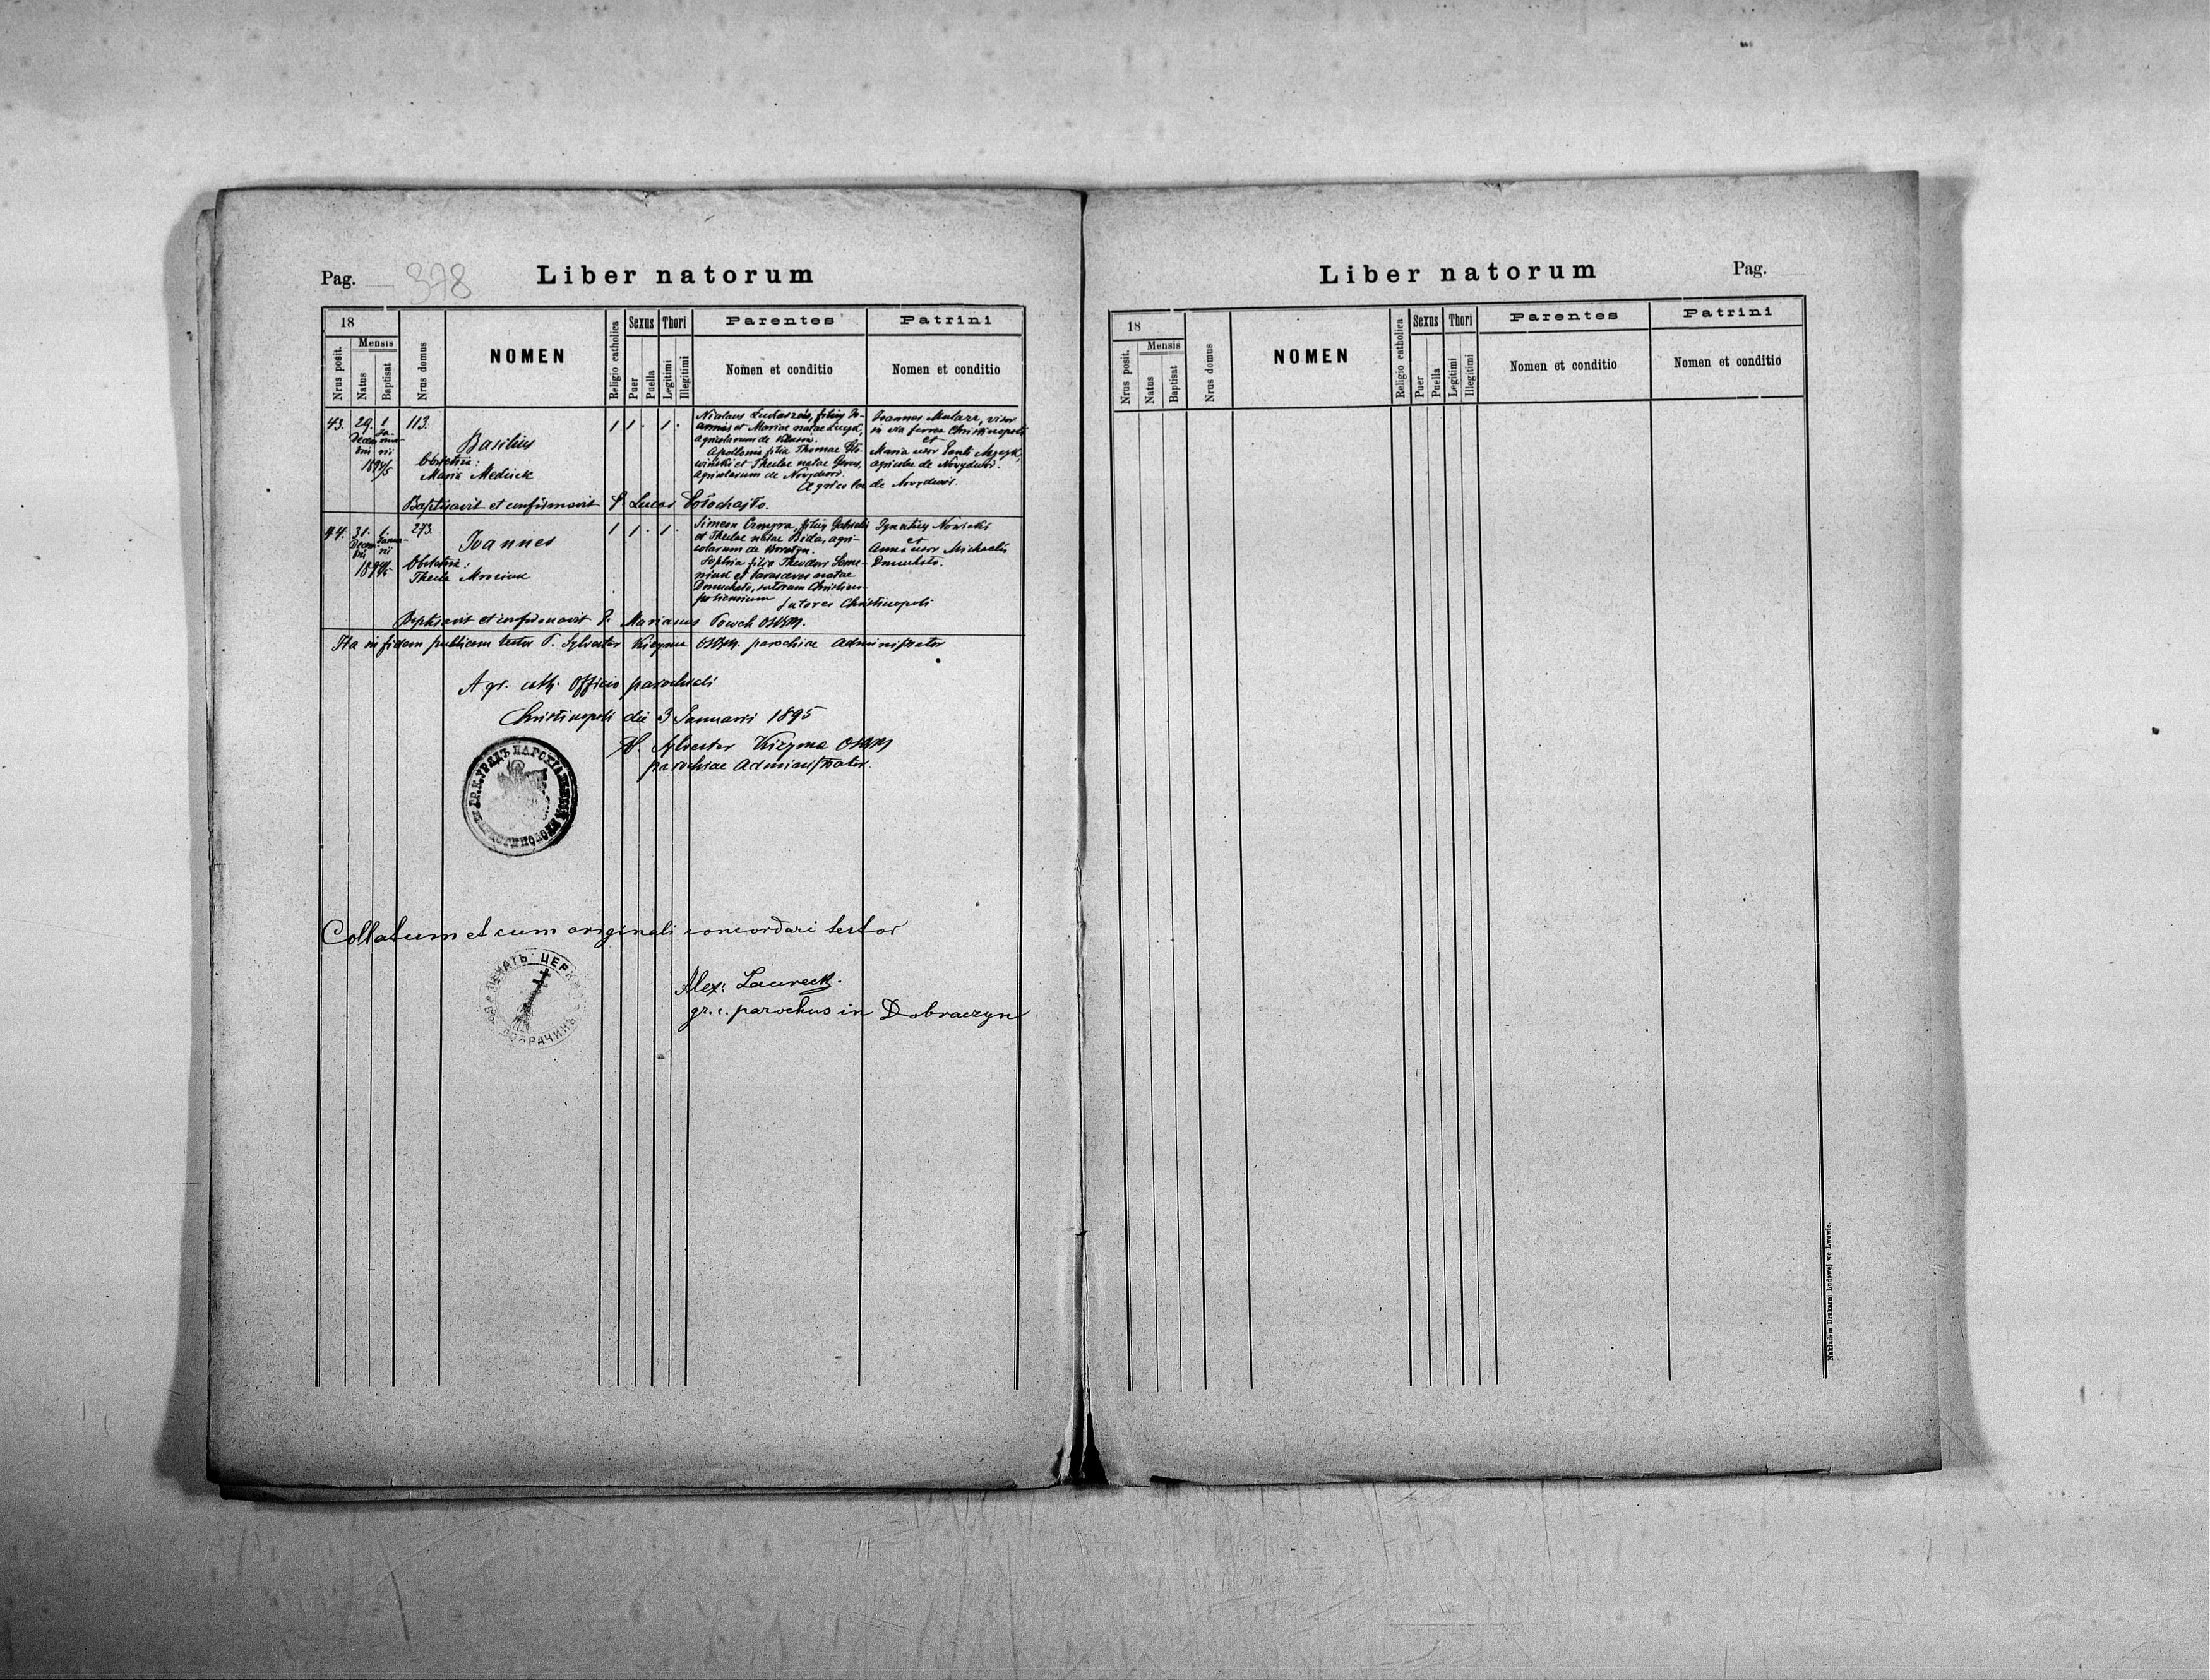 Pag. 378
Liber natorum
18
Mensis
Nrus posit.
Natus
Baptisat
Nrus domus
NOMEN
Religio catholica
Sexus
Puer
Puella
Thori
Legitimi
Illegitimi
Parentes
Nomen et conditio
Patrini
Nomen et conditio
43. 29. 1 113.
Decem
bris
1894/5
Basilius
Obstetrix:
Maria
1 1 . 1 .
filius Jo-
annis et Mariae natae
agricolarum de
Apollonia filia Thomae
et Theclae natae
agricolarum de Novydwor.
Agricolae de Novydwor.
Joannes Mularz,
in via ferrea Christinopoli
et
Maria uxor Pauli
agricolae de Novydwor.
Baptisavit et confirmavit P. Lucas
44. 31. 6 273.
Decem
bris
Janua-
rii
1894/5
Joannes
Obstetrix:
Thecla
1 1 . 1 .
Simeon filius Gabrielis
et Theclae natae Bida, agri-
colarum de
Sophia filia Theodori
et natae
sutorum Christino-
poliensium
sutores Christinopoli
Ignatius Nowicki
et
Anna uxor Michaelis
Baptisavit et confirmavit P. Marianus Powch OSBM.
Ita in fidem publicam testor P. Sylvester Kizyma OSBM. parochiae Administrator
A gr. cath. Officio parochiali
Christinopoli die 3 Januarii 1895
P. Sylvester Kizyma OSBM
parochiae Administrator.
Collatum et cum originali concordari testor
ПЕЧАТЬ ЦЕРК
Alex: Laureck.
gr. c. parochus in Dobraczyn
Liber natorum
Pag.
18
Mensis
Nrus posit.
Natus
Baptisat
Nrus domus
NOMEN
Religio catholica
Sexus
Puer
Puella
Thori
Legitimi
Illegitimi
Parentes
Nomen et conditio
Patrini
Nomen et conditio
Nakładem Drukarni Ludowej we Lwowie.